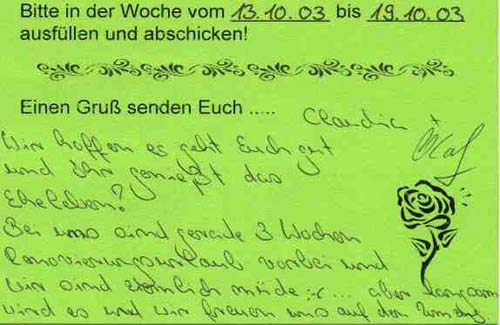 Bitte in der Woche vom 13.10.03 bis 19.10.03
ausfüllen und abschicken!
Einen Gruß senden Euch .....
Claudia + Olaf
Wir hoffen es geht Euch gut
und Ihr genießt das
Eheleben?
Bei uns sind gerade 3 Wochen
Renovierungsurlaub vorbei und
wir sind ziemlich müde :-( ... aber langsam
wird es und wir freuen uns auf den Umzug.